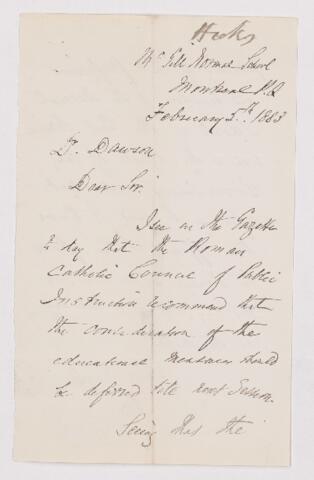 Hicks
McGill Normal School
Montreal P.Q
February 5th 1883
Dr. Dawson
Dear Sir.
I see in the Gazette
to day that the Roman
Catholic Council of Public
Instruction recommend that
the consideration of the
educational measures should
be deferred till next Session.
Seeing this the